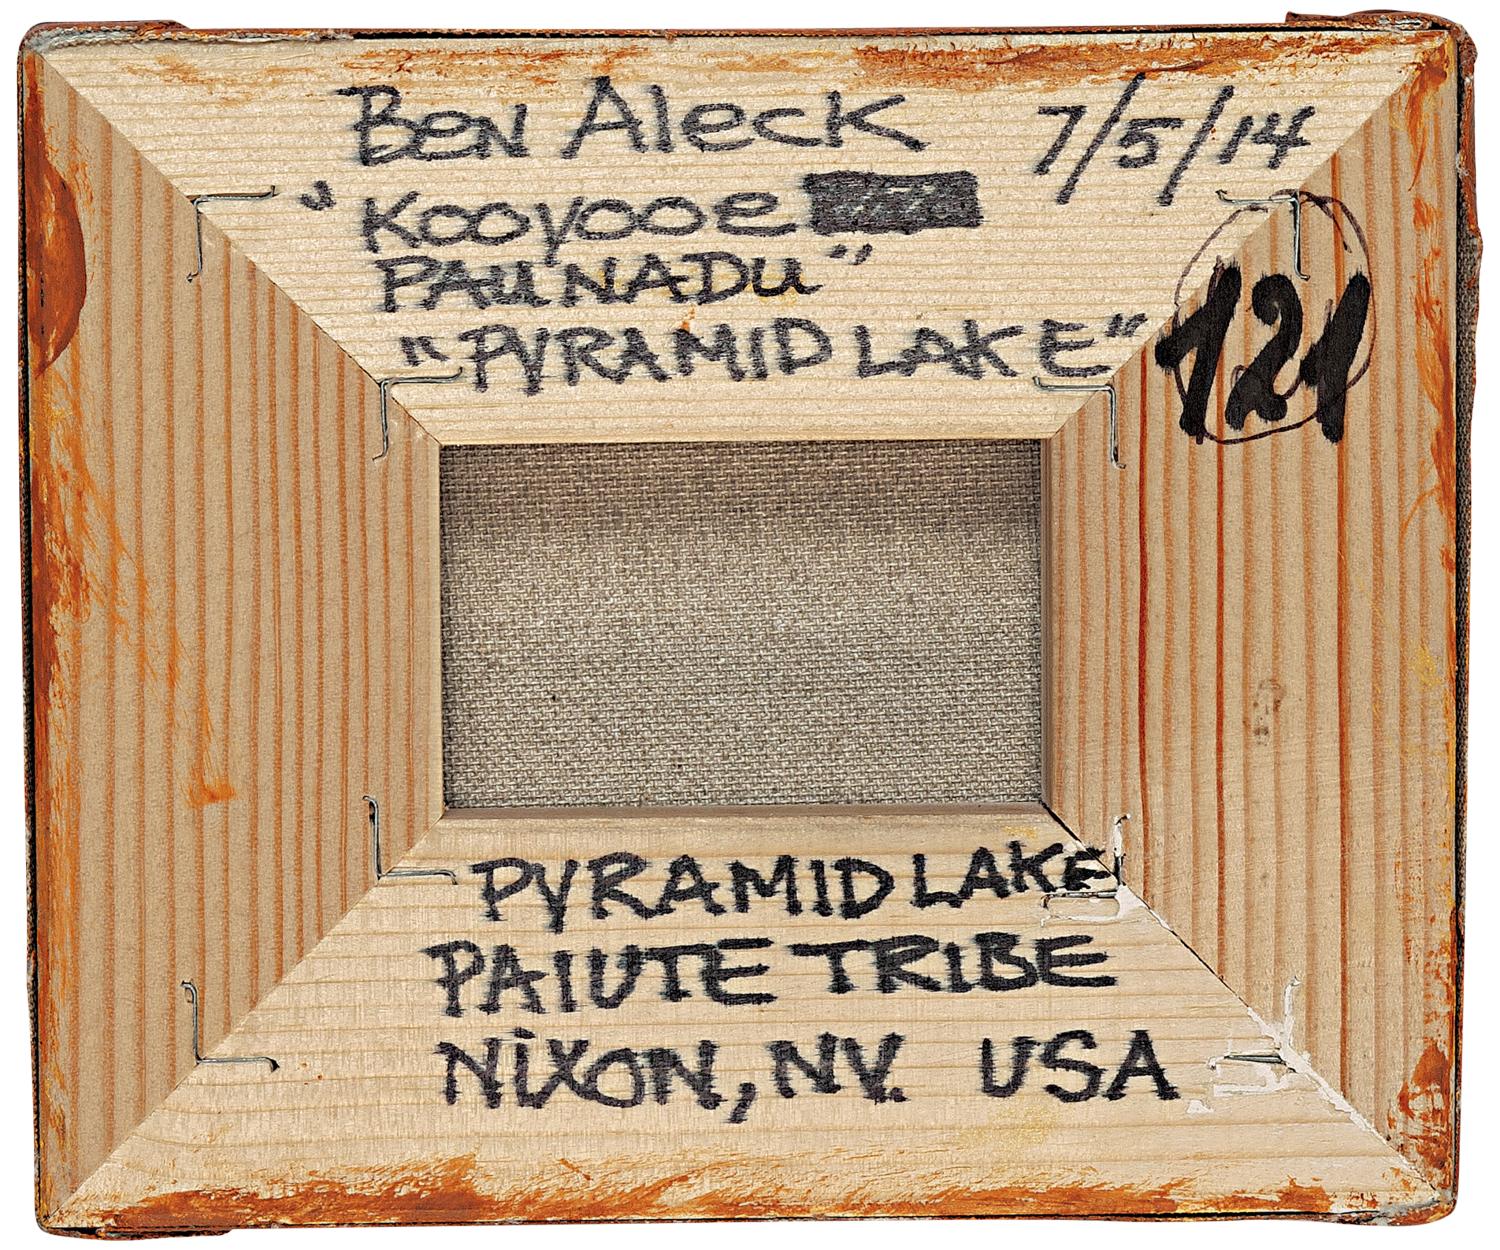 Ben Aleck 7/5/14
"Kooyooe
PAUNADU"
"PYRAMID LAKE"
121
PYRAMID LAKE
PAIUTE TRIBE
NIXON, NV. USA